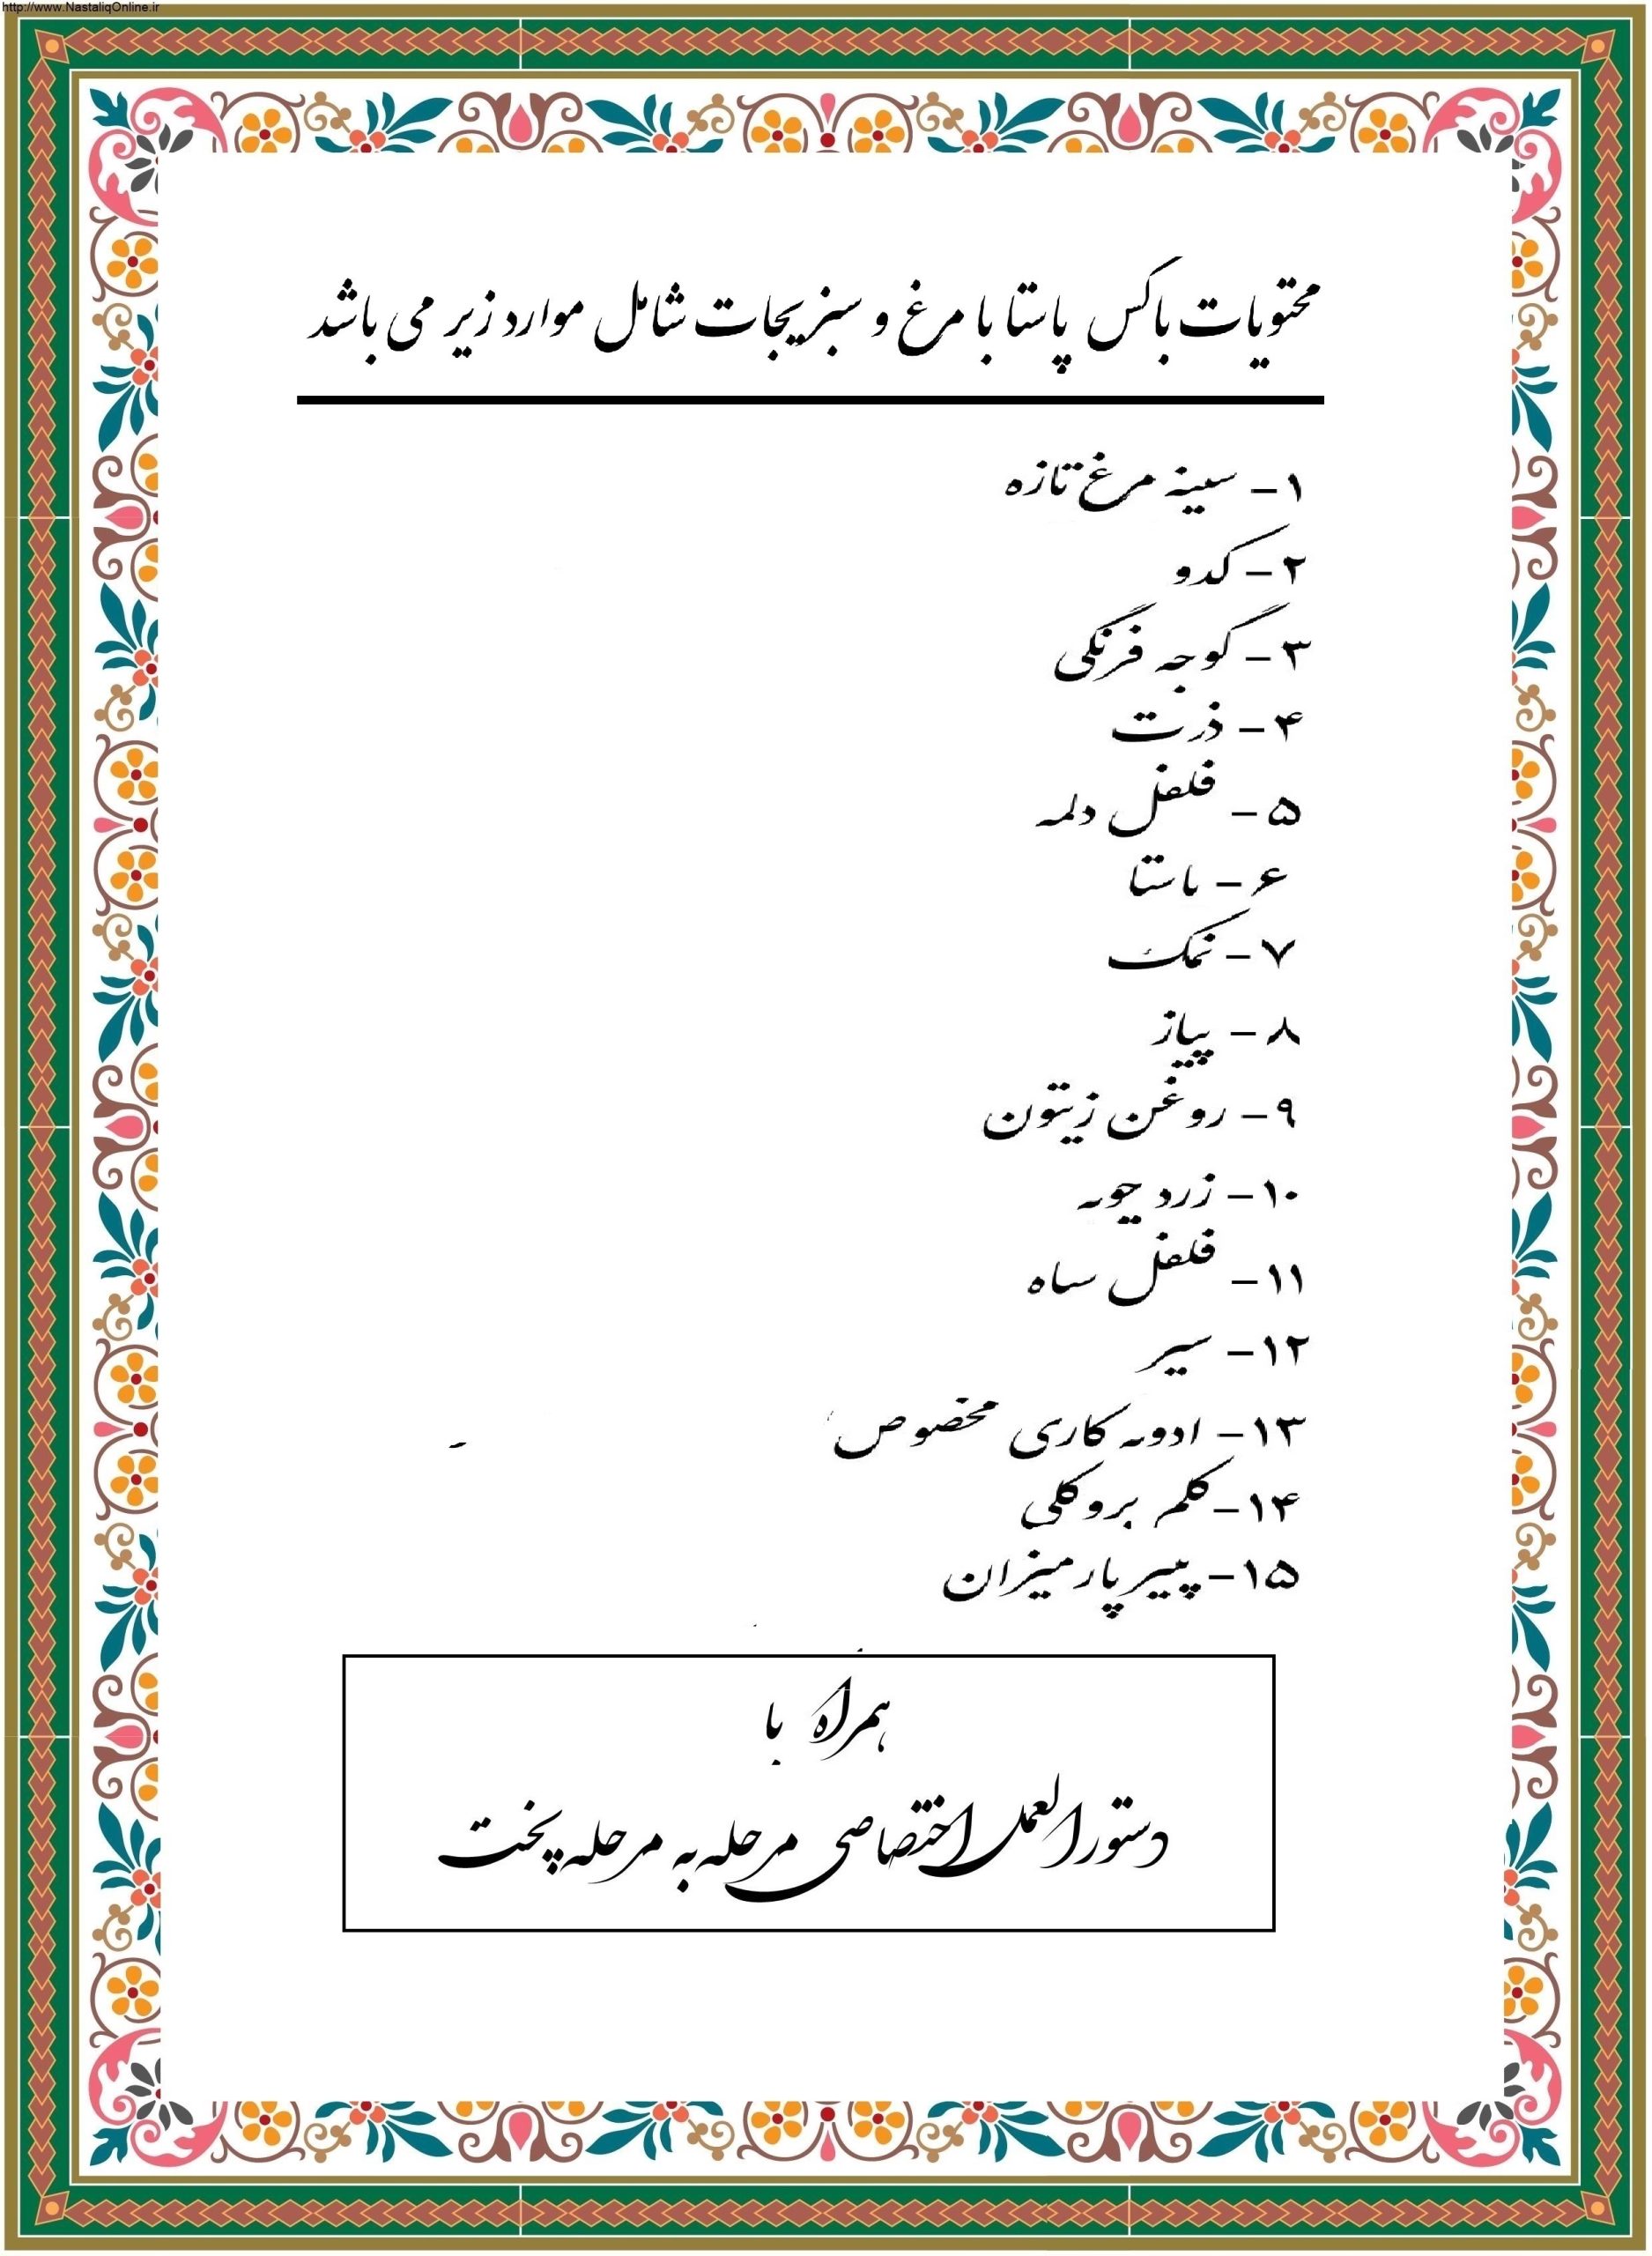 http://www.NastaliqOnline.ir
محتویات باکس پاستا با مرغ و سبزیجات شامل موارد زیر می باشد
۱- سینه مرغ تازه
۲- کدو
۳- گوجه فرنگی
۴- ذرت
۵- فلفل دلمه
۶- پاستا
۷- نمک
۸- پیاز
۹- روغن زیتون
۱۰- زرد چوبه
۱۱- فلفل سیاه
۱۲- سیر
۱۳- ادویه کاری مخصوص
۱۴- کلم بروکلی
۱۵- پنیر پارمیزان
همراه با
دستورالعمل اختصاصی مرحله به مرحله پخت